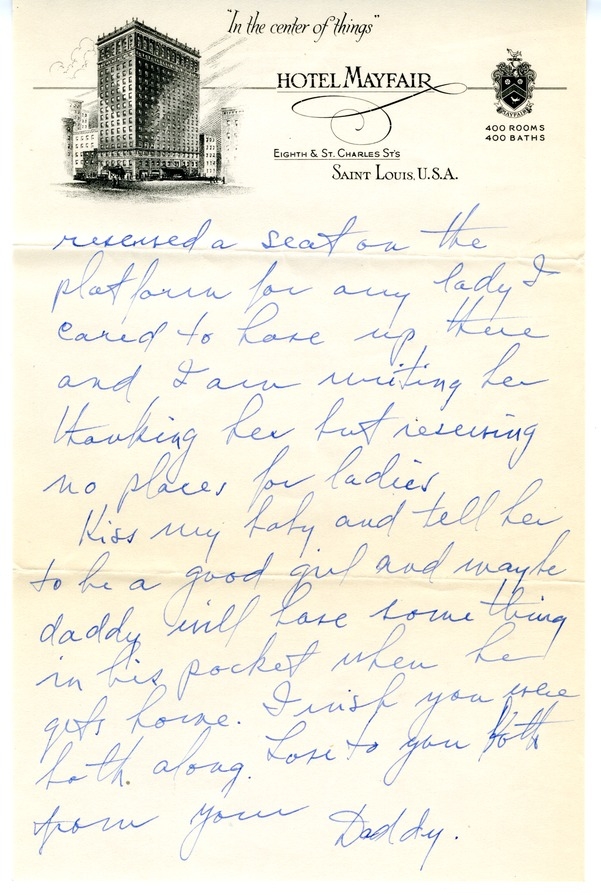 "In the center of things"
HOTEL MAYFAIR
MAYFAIR
400 ROOMS
400 BATHS
EIGHTH & ST. CHARLES ST'S
SAINT LOUIS, U.S.A.
reserved a seat on the
platform for any lady I
cared to have up there
and I am writing her
thanking her but reserving
no places for ladies
Kiss my baby and tell her
to be a good girl and maybe
daddy will have something
in his pocket when he
gets home. I wish you were
both along. Love to you both
from your Daddy.